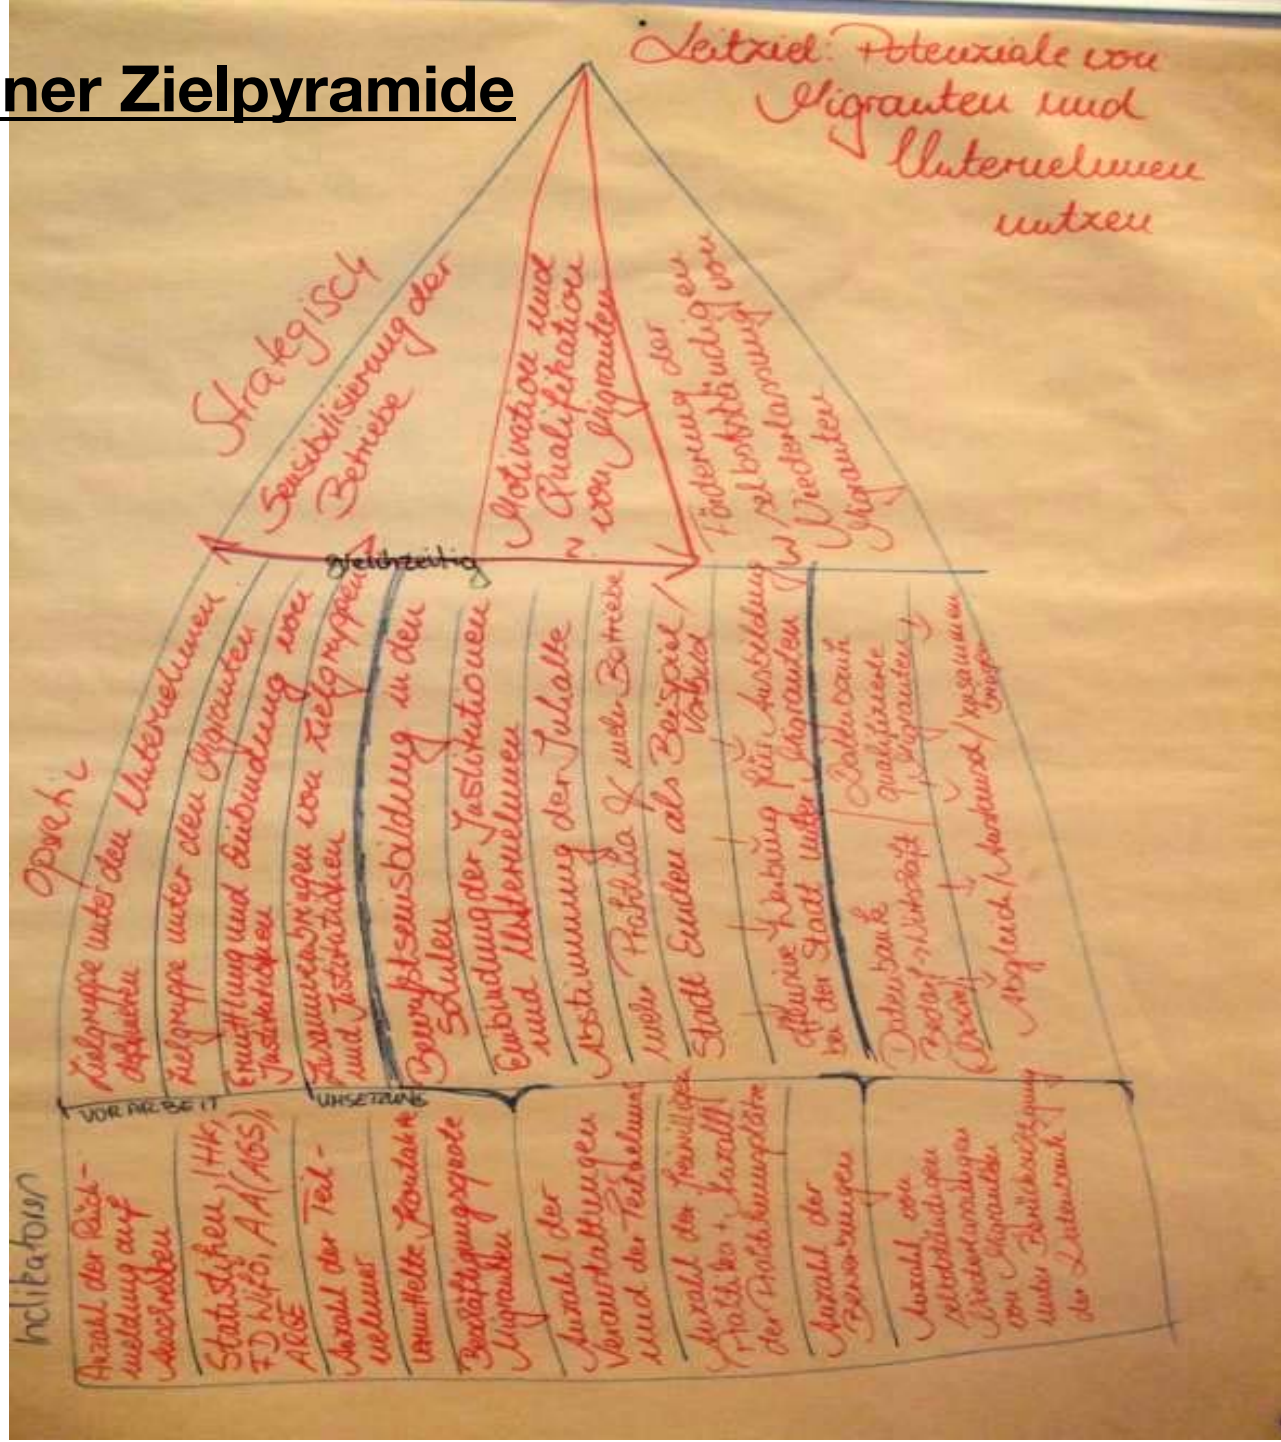 ner Zielpyramide
Leitziel: Potenziale von
Migranten und
Unternehmen
nutzen
Strategisch
Sensibilisierung der
Betriebe
Motivation und
Qualifikation
von Migranten
Förderung der
selbstständigen
Niederlassung von
Migranten
gleichzeitig
operativ
Zielgruppe unter den Unternehmen
definieren
Zielgruppe unter den Migranten
Ermittlung und Einbindung von
Institutionen
Zusammenbringen von Zielgruppen
und Institutionen
Bewusstseinsbildung in den
Schulen
Einbindung der Institutionen
und Unternehmen
Abstimmung der Inhalte
mehr Praktika & mehr Betriebe
Stadt Emden als Beispiel /
Vorbild
offensive Werbung für Ausbildung
bei der Stadt unter Migranten
Datenbank
Bedarf Wirtschaft
Datenbank
qualifizierte
Migranten
Abgleich / Austausch / zusammen
VORARBEIT
UMSETZUNG
Indikatoren
Anzahl der Rück-
meldung auf
Anschreiben
Statistiken, IHK,
FD WiFö, AA (AGS),
ARGE
Anzahl der Teil-
nehmer
vermittelte Kontakte
Beschäftigungsquote
Migranten
Anzahl der
Veranstaltungen
und der Teilnehmer
Anzahl der freiwilligen
Praktika + Anzahl
der Praktikumsplätze
Anzahl der
Bewerbungen
Anzahl von
selbständigen
Niederlassungen
von Migranten
unter Berücksichtigung
der Datenbank